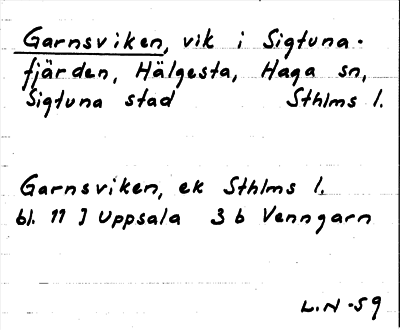 Garnsviken, vik i Sigtuna-
fjärden, Hälgesta, Haga sn,
Sigtuna stad Sthlms l.
Garnsviken, ek Sthlms l.
bl. 11 J Uppsala 3 b Venngarn
L.N -59